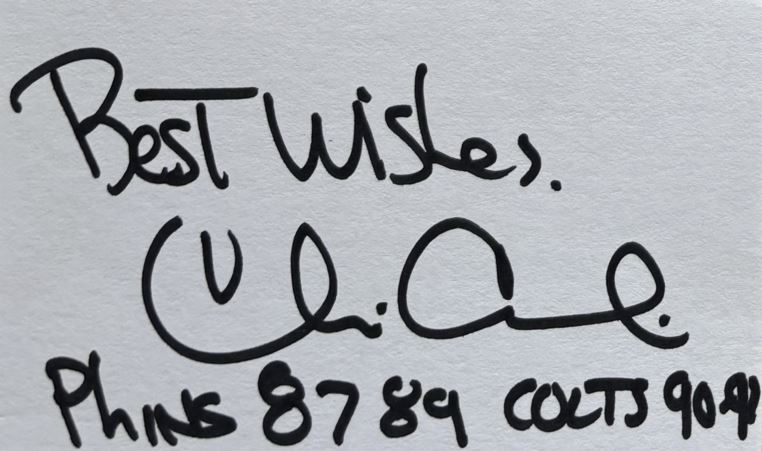 Best Wishes.
Phins 87 89 COLTS 90 91